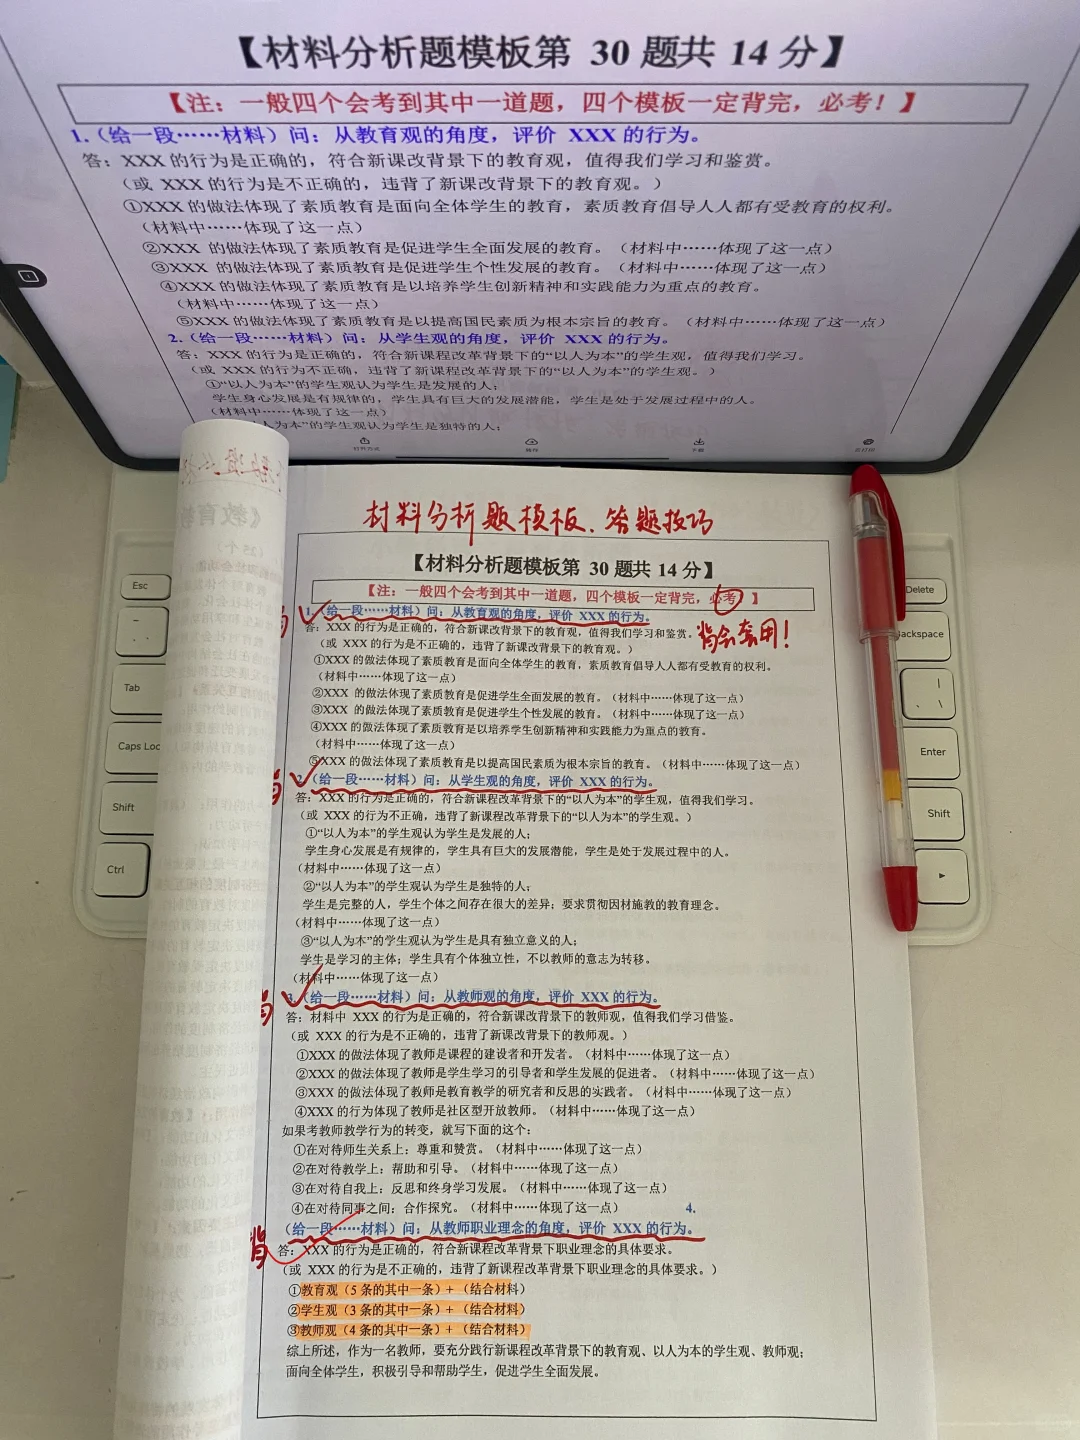 【材料分析题模板第 30 题共 14 分】
【注：一般四个会考到其中一道题，四个模板一定背完，必考！】
1.（给一段……材料）问：从教育观的角度，评价 XXX 的行为。
答：XXX 的行为是正确的，符合新课改背景下的教育观，值得我们学习和鉴赏。
（或 XXX 的行为是不正确的，违背了新课改背景下的教育观。）
①XXX 的做法体现了素质教育是面向全体学生的教育，素质教育倡导人人都有受教育的权利。
（材料中……体现了这一点）
②XXX 的做法体现了素质教育是促进学生全面发展的教育。（材料中……体现了这一点）
③XXX 的做法体现了素质教育是促进学生个性发展的教育。（材料中……体现了这一点）
④XXX 的做法体现了素质教育是以培养学生创新精神和实践能力为重点的教育。
（材料中……体现了这一点）
⑤XXX 的做法体现了素质教育是以提高国民素质为根本宗旨的教育。（材料中……体现了这一点）
2.（给一段……材料）问：从学生观的角度，评价 XXX 的行为。
答：XXX 的行为是正确的，符合新课程改革背景下的“以人为本”的学生观，值得我们学习。
（或 XXX 的行为不正确，违背了新课程改革背景下的“以人为本”的学生观。）
①“以人为本”的学生观认为学生是发展的人；
学生身心发展是有规律的，学生具有巨大的发展潜能，学生是处于发展过程中的人。
（材料中……体现了这一点）
人为本”的学生观认为学生是独特的人；
材料分析题模板、答题技巧
【材料分析题模板第 30 题共 14 分】
【注：一般四个会考到其中一道题，四个模板一定背完，必考！】
背会套用！
背
1.（给一段……材料）问：从教育观的角度，评价 XXX 的行为。
答：XXX 的行为是正确的，符合新课改背景下的教育观，值得我们学习和鉴赏。
（或 XXX 的行为是不正确的，违背了新课改背景下的教育观。）
①XXX 的做法体现了素质教育是面向全体学生的教育，素质教育倡导人人都有受教育的权利。
（材料中……体现了这一点）
②XXX 的做法体现了素质教育是促进学生全面发展的教育。（材料中……体现了这一点）
③XXX 的做法体现了素质教育是促进学生个性发展的教育。（材料中……体现了这一点）
④XXX 的做法体现了素质教育是以培养学生创新精神和实践能力为重点的教育。
（材料中……体现了这一点）
⑤XXX 的做法体现了素质教育是以提高国民素质为根本宗旨的教育。（材料中……体现了这一点）
背
2.（给一段……材料）问：从学生观的角度，评价 XXX 的行为。
答：XXX 的行为是正确的，符合新课程改革背景下的“以人为本”的学生观，值得我们学习。
（或 XXX 的行为不正确，违背了新课程改革背景下的“以人为本”的学生观。）
①“以人为本”的学生观认为学生是发展的人；
学生身心发展是有规律的，学生具有巨大的发展潜能，学生是处于发展过程中的人。
（材料中……体现了这一点）
②“以人为本”的学生观认为学生是独特的人；
学生是完整的人，学生个体之间存在很大的差异；要求贯彻因材施教的教育理念。
（材料中……体现了这一点）
③“以人为木”的学生观认为学生是具有独立意义的人；
学生是学习的主体；学生具有个体独立性，不以教师的意志为转移。
（材料中……体现了这一点）
背
3.（给一段……材料）问：从教师观的角度，评价 XXX 的行为。
答：材料中 XXX 的行为是正确的，符合新课改背景下的教师观，值得我们学习借鉴。
（或 XXX 的行为是不正确的，违背了新课改背景下的教师观。）
①XXX 的做法体现了教师是课程的建设者和开发者。（材料中……体现了这一点）
②XXX 的做法体现了教师是学生学习的引导者和学生发展的促进者。（材料中……体现了这一点）
③XXX 的做法体现了教师是教育教学的研究者和反思的实践者。（材料中……体现了这一点）
④XXX 的行为体现了教师是社区型开放教师。（材料中……体现了这一点）
如果考教师教学行为的转变，就写下面的这个：
①在对待师生关系上：尊重和赞赏。（材料中……体现了这一点）
②在对待教学上：帮助和引导。（材料中……体现了这一点）
③在对待自我上：反思和终身学习发展。（材料中……体现了这一点）
④在对待同事之间：合作探究。（材料中……体现了这一点） 4.
（给一段……材料）问：从教师职业理念的角度，评价 XXX 的行为。
背
答：XXX 的行为是正确的，符合新课程改革背景下职业理念的具体要求。
（或 XXX 的行为是不正确的，违背了新课程改革背景下职业理念的具体要求。）
①教育观（5 条的其中一条）+（结合材料）
②学生观（3 条的其中一条）+（结合材料）
③教师观（4 条的其中一条）+（结合材料）
综上所述，作为一名教师，要充分践行新课程改革背景下的教育观、以人为本的学生观、教师观；
面向全体学生，积极引导和帮助学生，促进学生全面发展。
Esc
Tab
Caps Loc
Shift
Ctrl
Delete
Backspace
Enter
Shift